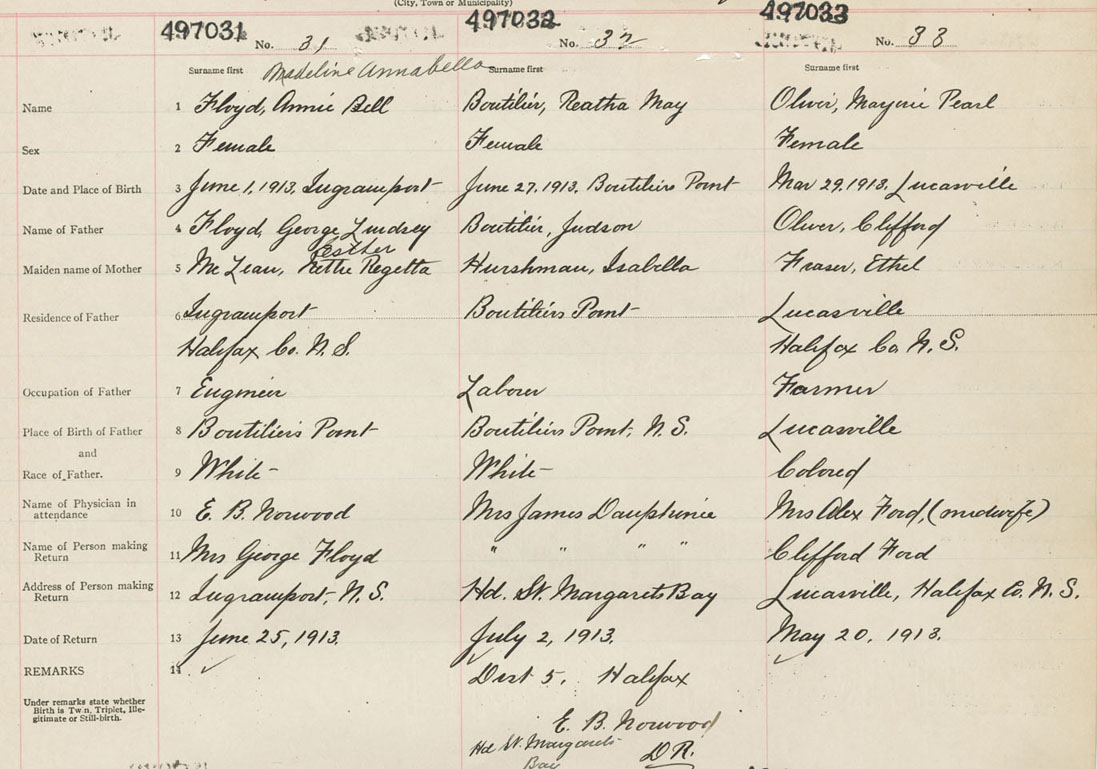 (City, Town or Municipality)
497031 497032 497033
No. 31 No. 32 No. 33
Surname first Madeline Annabella Surname first Surname first
Name 1 Floyd, Annie Bell Boutilier, Reatha May Oliver, Marjorie Pearl
Sex 2 Female Female Female
Date and Place of Birth 3 June 1, 1913, Ingramport June 27, 1913, Boutiliers Point Mar 29, 1913, Lucasville
Name of Father 4 Floyd, George Lindsey Boutilier, Judson Oliver, Clifford
Esther
Maiden name of Mother 5 McLean, Nettie Regetta Hurshman, Isabella Fraser, Ethel
Residence of Father 6 Ingramport Boutiliers Point Lucasville
Halifax Co. N.S. Halifax Co. N.S.
Occupation of Father 7 Engineer Laborer Farmer
Place of Birth of Father 8 Boutiliers Point Boutiliers Point, N.S. Lucasville
and
Race of Father. 9 White White Colored
Name of Physician in
attendance 10 E. B. Norwood Mrs James Dauphinie Mrs Alex Ford, (midwife)
Name of Person making
Return 11 Mrs George Floyd " " " " Clifford Ford
Address of Person making
Return 12 Ingramport, N.S. Hd. St. Margarets Bay Lucasville, Halifax Co. N.S.
Date of Return 13 June 25, 1913. July 2, 1913. May 20, 1913.
REMARKS 14 ✓ Dist 5. Halifax
Under remarks state whether
Birth is Twin, Triplet, Ille-
gitimate or Still-birth.
E. B. Norwood
Hd St. Margarets D.R.
Bay